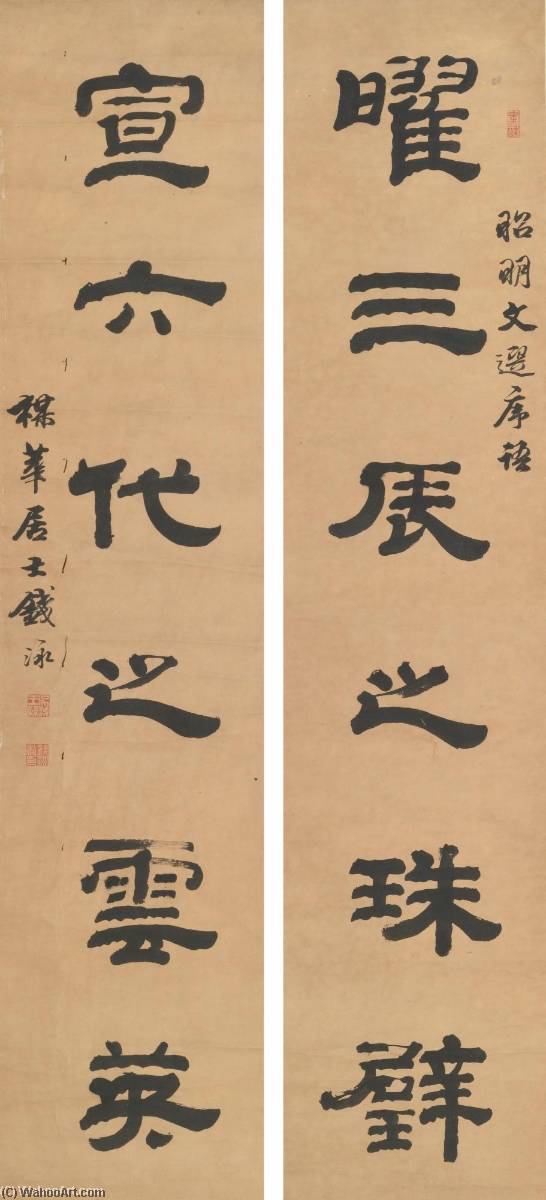 昭明文選序語
曜三辰之珠璧
宣六代之雲英
楳華居士錢泳
(C) WahooArt.com